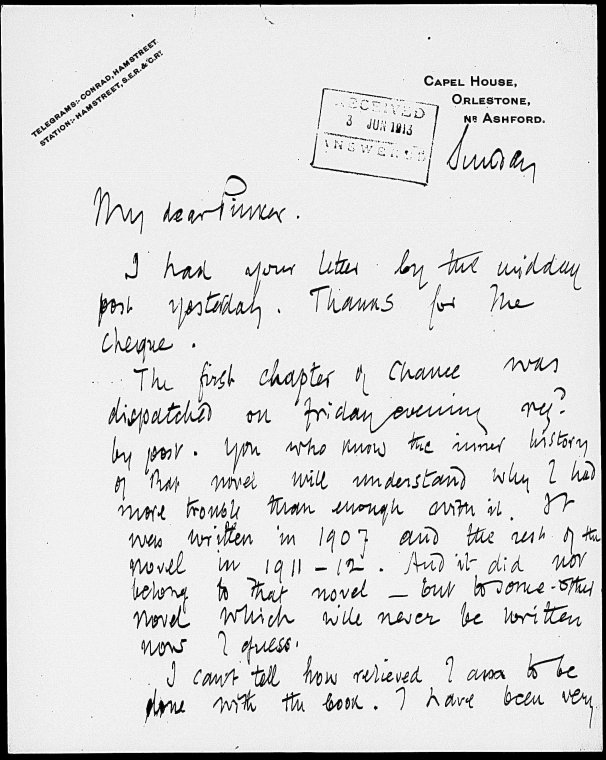 TELEGRAMS:- CONRAD, HAMSTREET.
STATION:- HAMSTREET, S.E.R. & C.RY.
CAPEL HOUSE,
ORLESTONE,
NR ASHFORD.
RECEIVED
3 JUN 1913
ANSWERED
Sunday
My dear Pinker.
I had your letter by the midday
post yesterday. Thanks for the
cheque.
The first chapter of Chance was
dispatched on friday evening reg?
by post. You who know the inner history
of that novel will understand why I had
more trouble than enough with it. It
was written in 1907 and the rest of the
novel in 1911-12. And it did not
belong to that novel — but to some other
novel which will never be written
now I guess.
I can't tell how relieved I am to be
done with the book. I have been very